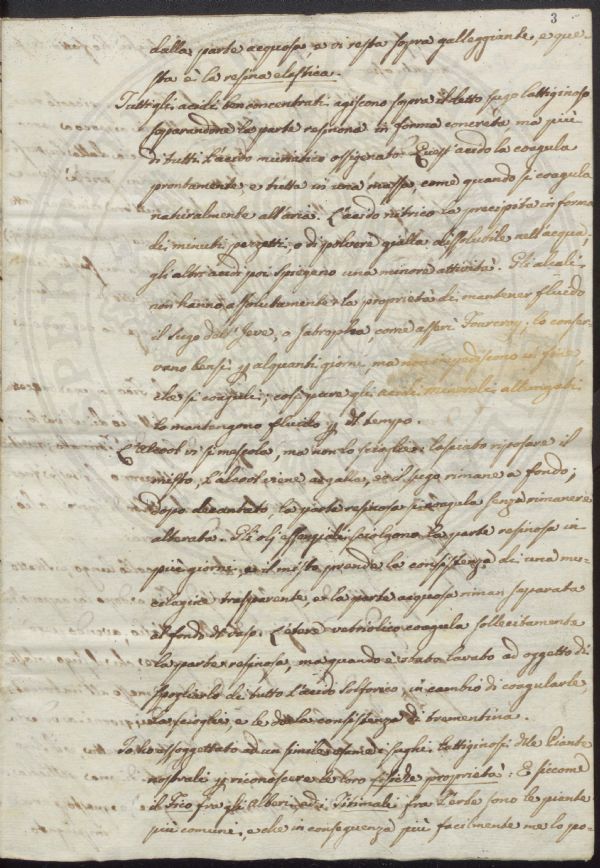 3
dalla parte acquosa e vi resta sopra galleggiante, e que-
sta è la resina elastica.
Tutti gli acidi ben concentrati agiscono sopra il detto sugo lattiginoso
separandone la parte resinosa in forma concreta ma più
di tutti l'acido muriatico ossigenato. Quest'acido la coagula
prontamente e tutta in una massa, come quando si coagula
naturalmente all'aria. L'acido nitrico la precipita in forma
di minuti pezzetti, o di polvere gialla dissolubile nell'acqua;
gli altri acidi poi spiegano una minore attività. Gli alcali
non hanno assolutamente la proprietà di mantener fluido
il sugo dell'Jeve, o Jatropha, come asserì Fourcroy; lo conser-
vano bensì p alquanti giorni, ma non impediscono in fine,
che si coaguli; così pure gli acidi minerali allungati
lo mantengono fluido p dto tempo.
L'Alcool vi si mescola, ma non lo scioglie: lasciato riposare il
misto, l'alcool viene a galla, ed il sugo rimane a fondo;
dopo decantato la parte resinosa si coagula senza rimanere
alterata. Gli olj essenziali sciolgono la parte resinosa in
più giorni, ed il misto prende la consistenza di una mu-
cilagine trasparente, e la parte acquosa riman separata
al fondo del vaso. L'etere vetriolico coagula sollecitamente
la parte resinosa, ma quando è stato lavato ad oggetto di
toglierlo di tutto l'acido solforico, in cambio di coagularle,
la scioglie, e le dà la consistenza di trementina.
Io ho assoggettato ad un simile esame i sughi lattiginosi dlle Piante
nostrali p riconoscere le loro fisiche proprietà: E siccome
il Fico fra gli Alberi, ed i Titimali fra l'erbe sono le piante
più comuni, e che in conseguenza più facilmente me lo po-